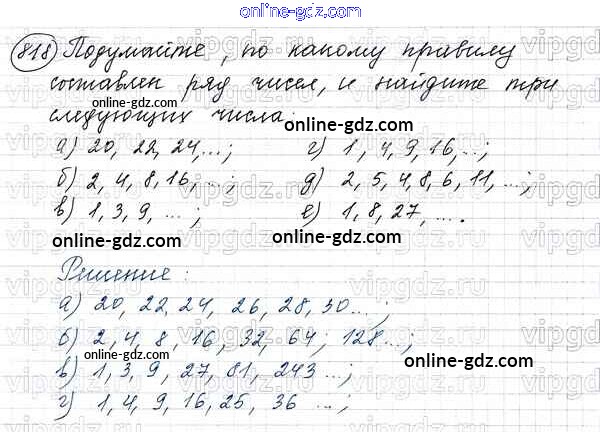 online-gdz.com
818 Подумайте, по какому правилу
составлен ряд чисел, и найдите три
следующих числа:
online-gdz.com online-gdz.com
а) 20, 22, 24,...; г) 1, 4, 9, 16, ...;
online-gdz.com
б) 2, 4, 8, 16, ...; д) 2, 5, 4, 8, 6, 11, ...;
в) 1, 3, 9, ...; е) 1, 8, 27, ....
online-gdz.com online-gdz.com
Решение:
а) 20, 22, 24, 26, 28, 30...;
б) 2, 4, 8, 16, 32, 64; 128...;
online-gdz.com online-gdz.com
в) 1, 3, 9, 27, 81, 243...;
г) 1, 4, 9, 16, 25, 36 ...;
online-gdz.com
vipgdz.ru